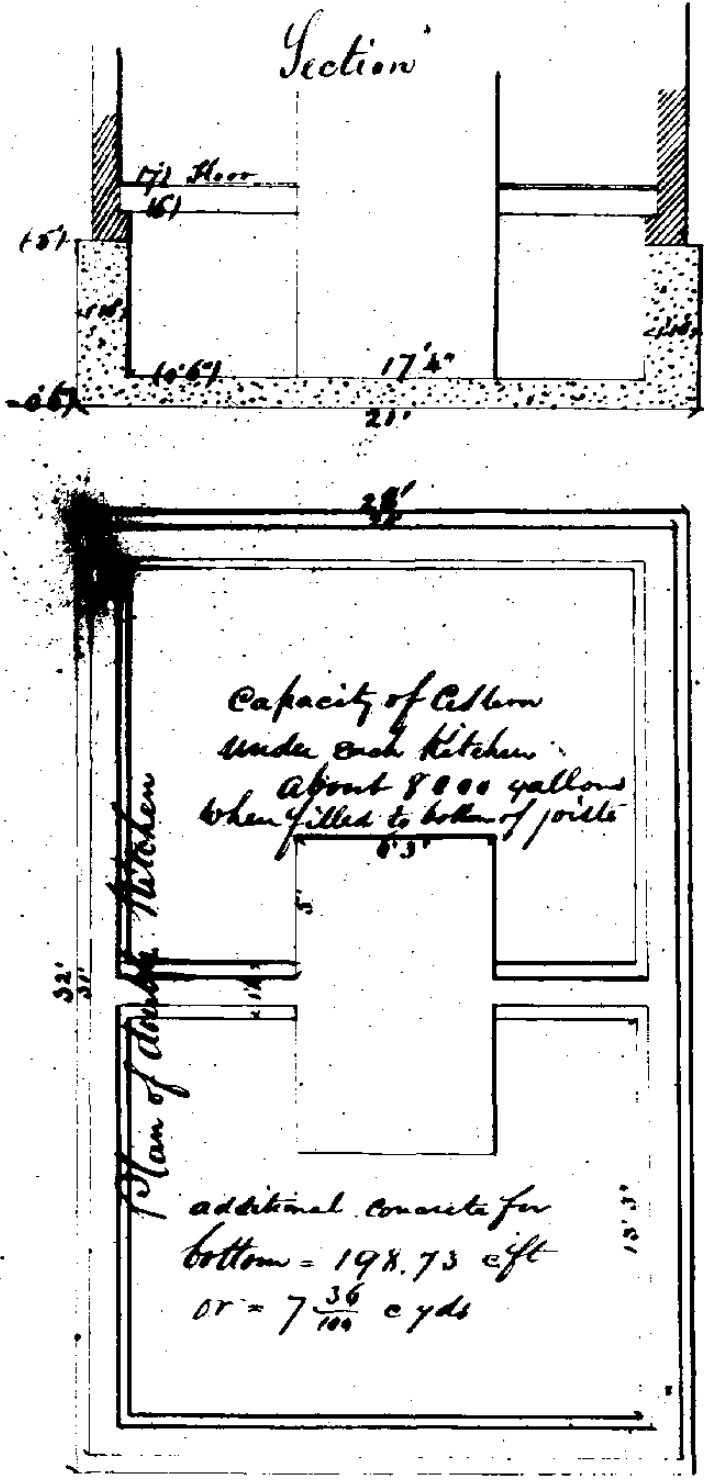 Section
Floor
(5')
(0'6")
17'4"
-0'6"
21'
Capacity of Cistern
under each Kitchen
about 8000 gallons
when filled to bottom of joists
6'3"
5'
32'
31'
Plan of double Kitchen
additional concrete for
bottom = 198.73 c ft
or = 7 36/100 c yds
13'3"